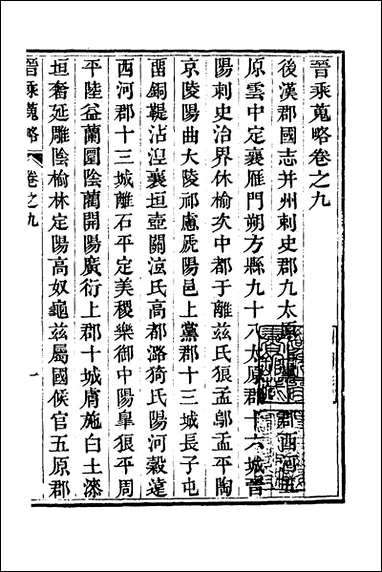 晉乘蒐略卷之九
後漢郡國志并州刺史郡九太原
郡西河五
原雲中定襄雁門朔方縣九十八太原郡十六城晉
陽刺史治界休榆次中都于離兹氏狼孟鄔盂平陶
京陵陽曲大陵祁慮虒陽邑上黨郡十三城長子屯
畱銅鞮沾湼襄垣壺關泫氏高都潞猗氏陽河穀遠
西河郡十三城離石平定美稷樂街中陽臯狼平周
平陸益蘭圜陰藺開陽廣衍上郡十城膚施白土漆
垣奢延雕陰榆林定陽高奴龜兹屬國候官五原郡
晉乘蒐略
卷之九
一